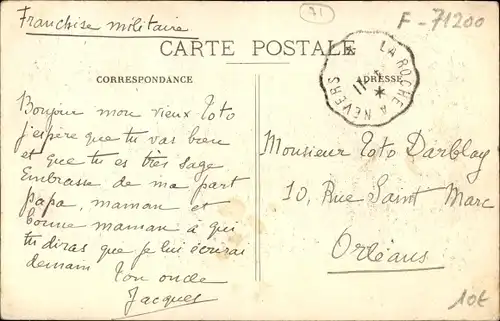 Franchise militaire
71
F-71200
CARTE POSTALE
CORRESPONDANCE
ADRESSE
LA ROCHE A NEVERS
11
Bonjour mon vieux Toto
j'espère que tu vas bien
et que tu es très sage
Embrasse de ma part
papa, maman et
bonne maman à qui
tu diras que je lui écrirai
demain
ton oncle
Jacques
Monsieur Toto Darblay
10, Rue Saint Marc
Orléans
10€